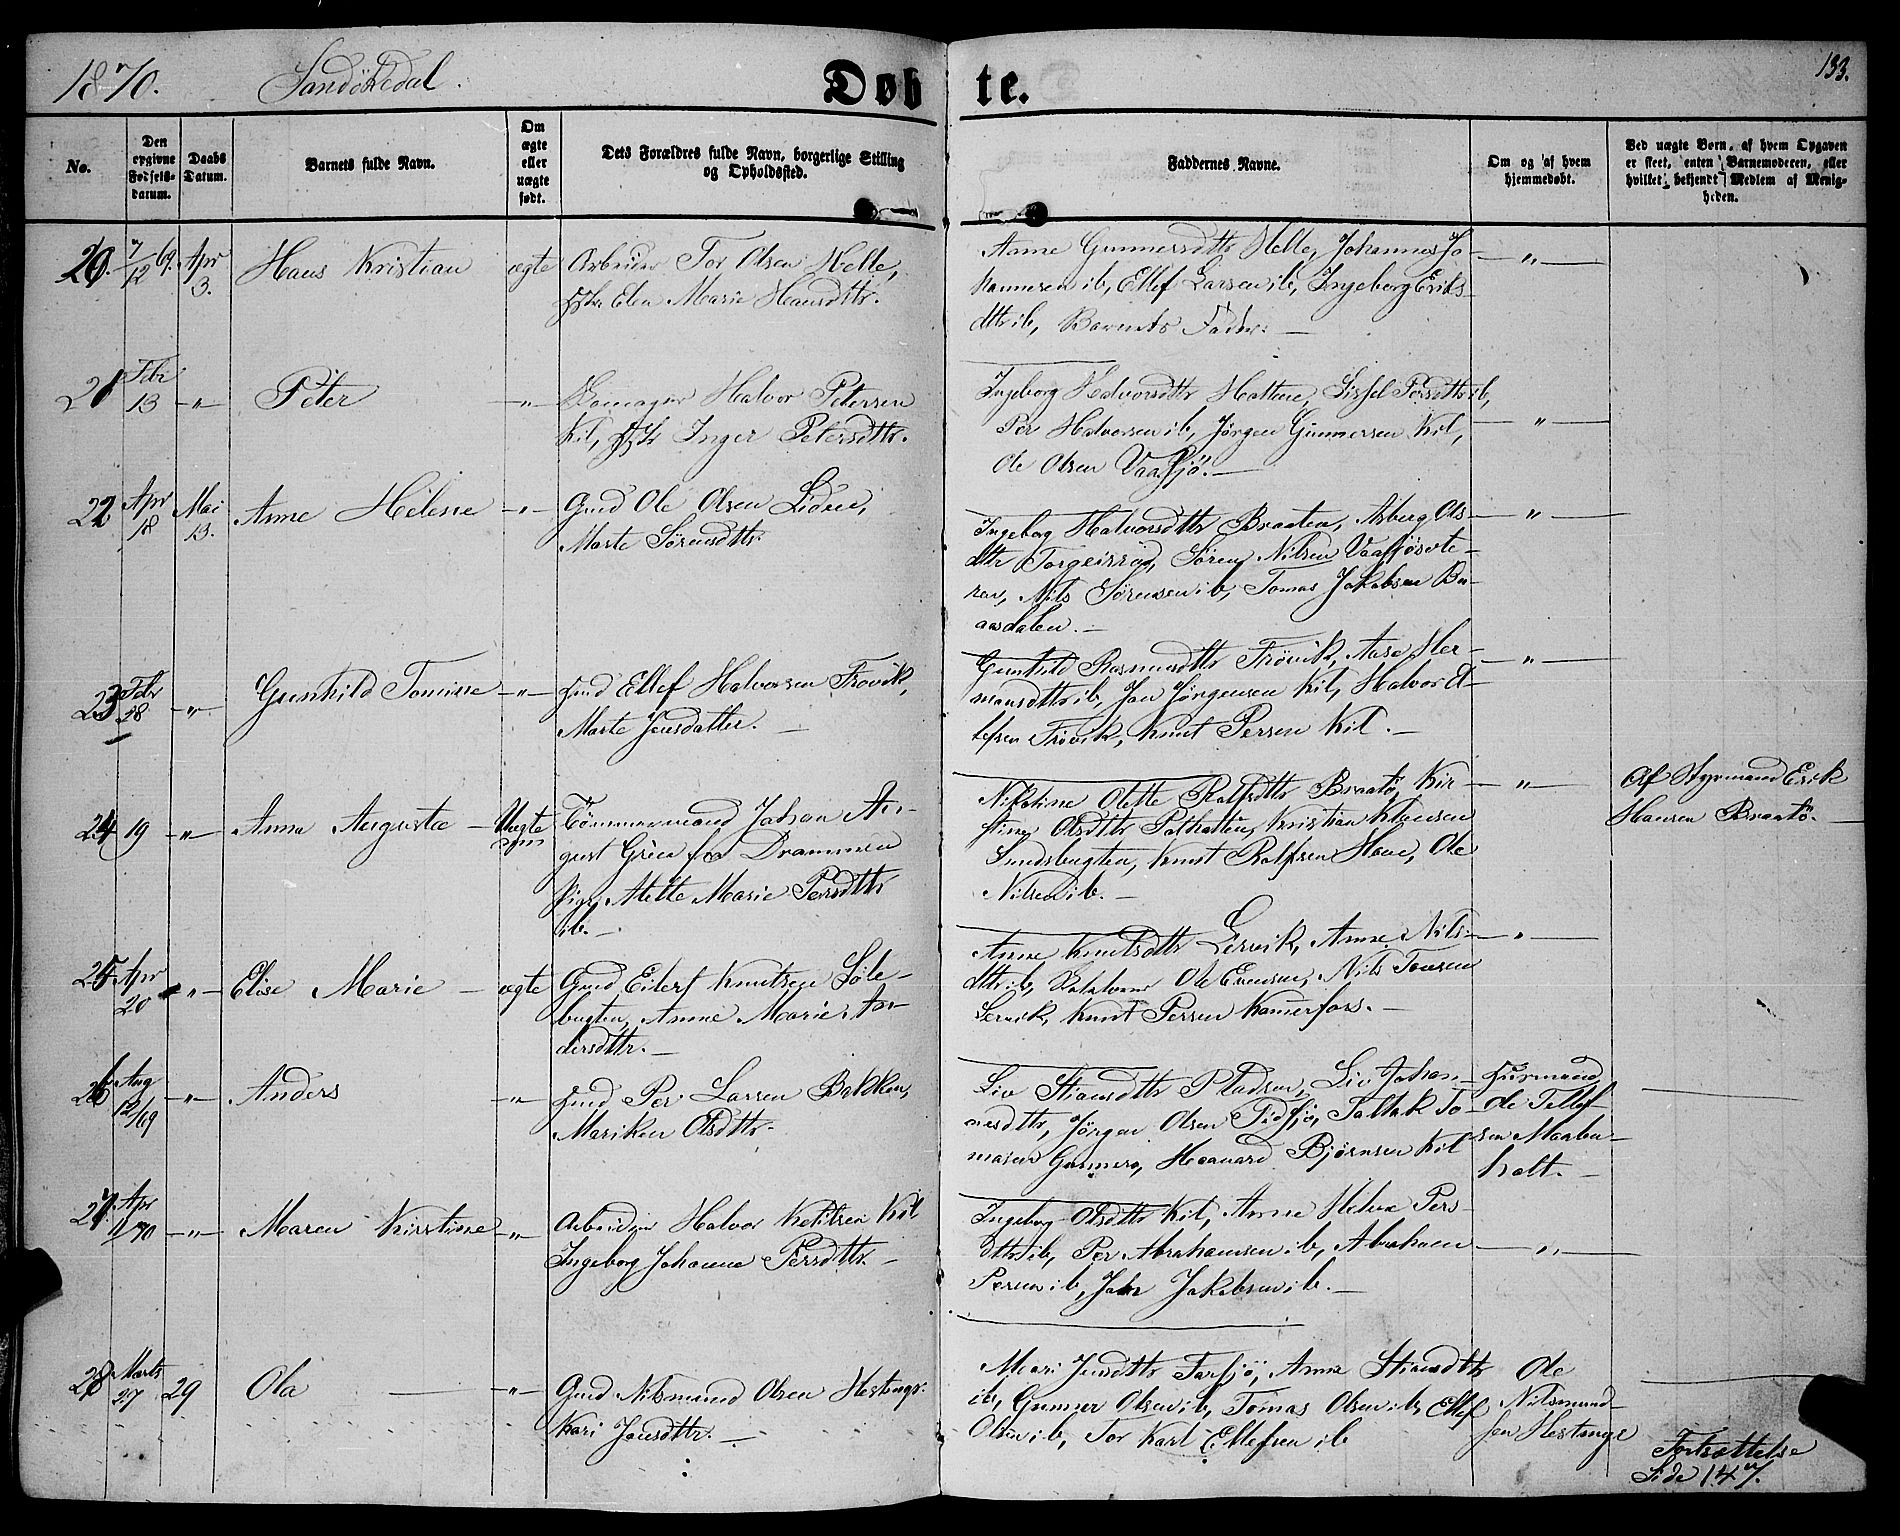 1870. Sandøkedal. Døbte. 133.
No.
Den opgivne Fødselsdatum.
Daabs Datum.
Barnets fulde Navn.
Om ægte eller uægte født.
Dets Forældres fulde Navn, borgerlige Stilling og Opholdssted.
Faddernes Navne.
Om og af hvem hjemmedøbt.
Ved uægte Børn, af hvem Opgaven er skeet, enten Barnemoderen, eller hvilket bekjendt Medlem af Menigheden.
20. 7/12 69. Apr 3. Hans Kristian ægte Arbeider Tor Olsen Helle,
Elen Marie Hansdttr.
Anne Gunnersdttr Helle, Johannes Jo-
hannesen ib, Ellef Larsen ib, Ingeborg Eriks-
dttr ib, Barnets Fader. —
— " —
21 Febr 13 — " — Peter — " — Halvor Petersen
Kil, Inger Petersdttr.
Ingeborg Halvorsdttr Hattene, Sissel Torsdttr ib,
Per Halvorsen ib, Jørgen Gunnersen Kil,
Ole Olsen Vaasjø. —
— " —
22 Apr 18 Mai 13. Anne Helene — " — Gmd Ole Olsen Lidne,
Marte Sørensdttr.
Ingeborg Halvorsdttr Braaten, Asberg Ols-
dttr Torgeirsrød, Søren Nilsen Vaasjøsete-
ren, Nils Sørensen ib, Tomas Jakobsen Ba-
asdalen. —
— " —
23 Febr 18 — " — Gunhild Tomine — " — Hmd Ellef Halvorsen Frøvik,
Marte Jensdatter. —
Gunhild Rasmusdttr Frøvik, Aase Her-
mansdttr ib, Jan Jørgensen Kil, Halvor El-
lefsen Frøvik, Knut Persen Kil. —
— " —
24 19 — " — Anna Augusta — Uægte
Tømmermand Johan Au-
gust Grien fra Drammen
Pige Mette Marie Persdttr
ib. —
Nikoline Olette Rolfsdttr Braatø, Kir-
stine Olsdttr Kristian Klausen
Sundsbugten, Knut Rolfsen Ole
Nilsen ib. —
— " —
Af Styrmand Erik
Hansen Braatø.
25 Apr 20 — " — Elise Marie — ægte Gmd Eilert Knutsen Søle-
bugten, Anne Marie An-
dersdttr. —
Anne Knutsdttr Lervik, Anne Nils-
dttr ib, Ole Evensen, Nils
Lervik, Knut Persen Kamerfos. —
— " —
26 Aug 12/69 — " — Anders — " — Hmd Per Larsen Bakken,
Mariken Olsdttr.
Liv Stiansdttr Pladsen, Liv Johan-
nesdttr, Jørgen Olsen Saltak To-
masen Haavard Bjørnsen Kil
Furmand
Ole Tellef-
sen Maabu-
holt. —
27. Apr 1/70 — " — Maren Kirstine — " — Arbeider Halvor Ketilsen Kil
Ingeborg Johanne Persdttr. —
Ingeborg Olsdttr Kil, Anne Helva Pers-
dttr ib, Per Abrahamsen ib, Abraham
Persen ib, Jakobsen ib. —
— " —
28 Marts 27 29 Ola — — " — Gmd Nilsmund Olsen Hestange
Kari Jensdttr. —
Mari Jensdttr Farsjø, Anne Stiansdttr
ib, Gunner Olsen ib, Tomas Olsen ib, Ellef
Olsen ib, Tor Karl Ellefsen ib
Ole
Nilsmund-
sen Hestange
Fortsættelse
Side 147.